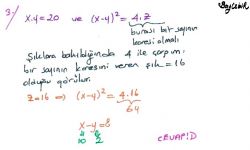 3) x.y=20 ve (x-y)² = 4.z
burası bir sayının
karesi olmalı
Şıklara bakıldığında 4 ile çarpımı
bir sayının karesini veren şık = 16
olduğu görülür.
z=16 ⇒ (x-y)² = 4.16
64
x-y=8
10 2
CEVAP: D